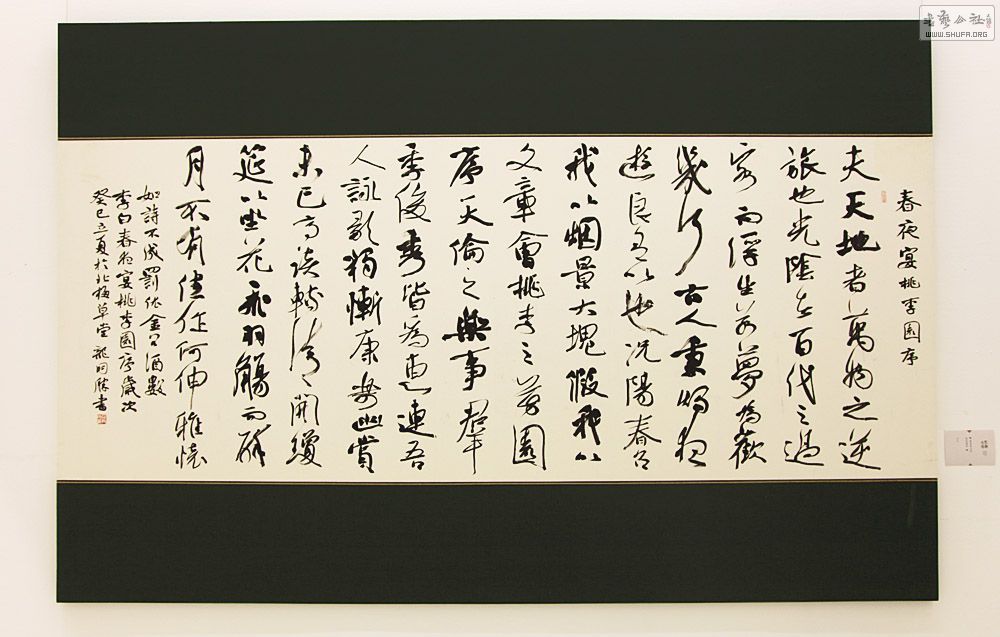 書藝公社
WWW.SHUFA.ORG
春夜宴桃李園序
夫天地者萬物之逆
旅也光陰者百代之過
客而浮生若夢為歡
幾何古人秉燭夜
遊良有以也况陽春召
我以烟景大塊假我以
文章會桃李之芳園
序天倫之樂事群
季俊秀皆為惠連吾
人詠歌獨慚康樂幽賞
未已高談轉清開瓊
筵以坐花飛羽觴而醉
月不有佳作何伸雅懷
如詩不成罰依金谷酒數
李白春夜宴桃李園序歲次
癸巳立夏於北梅草堂 龍開勝書